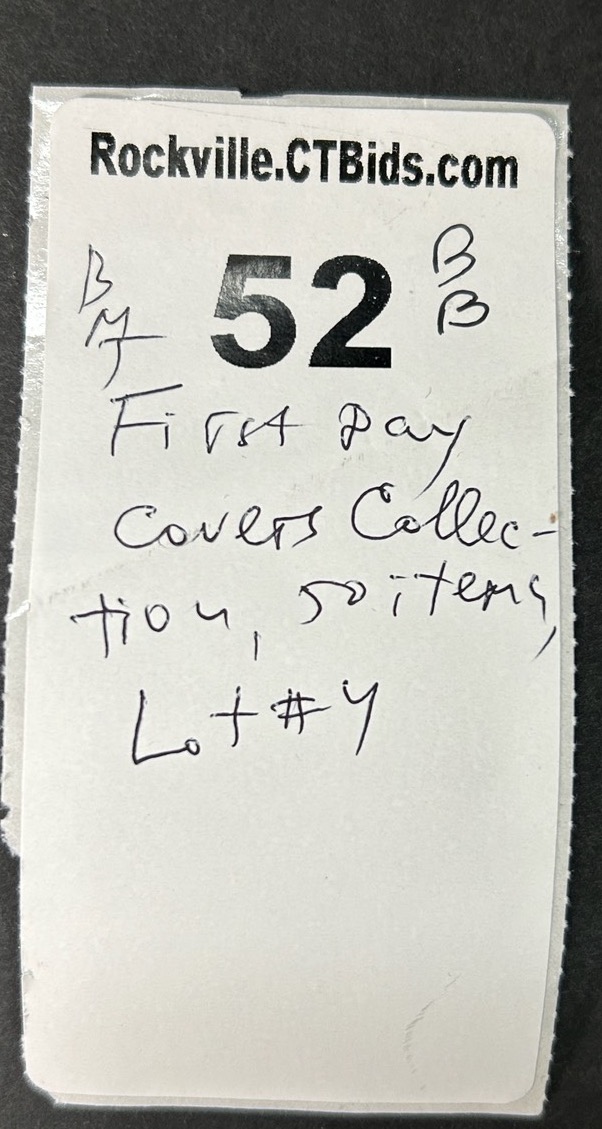 Rockville.CTBids.com
B 52 B
MJ B
First Day
Covers Collec-
tion, 50 items,
Lot #4